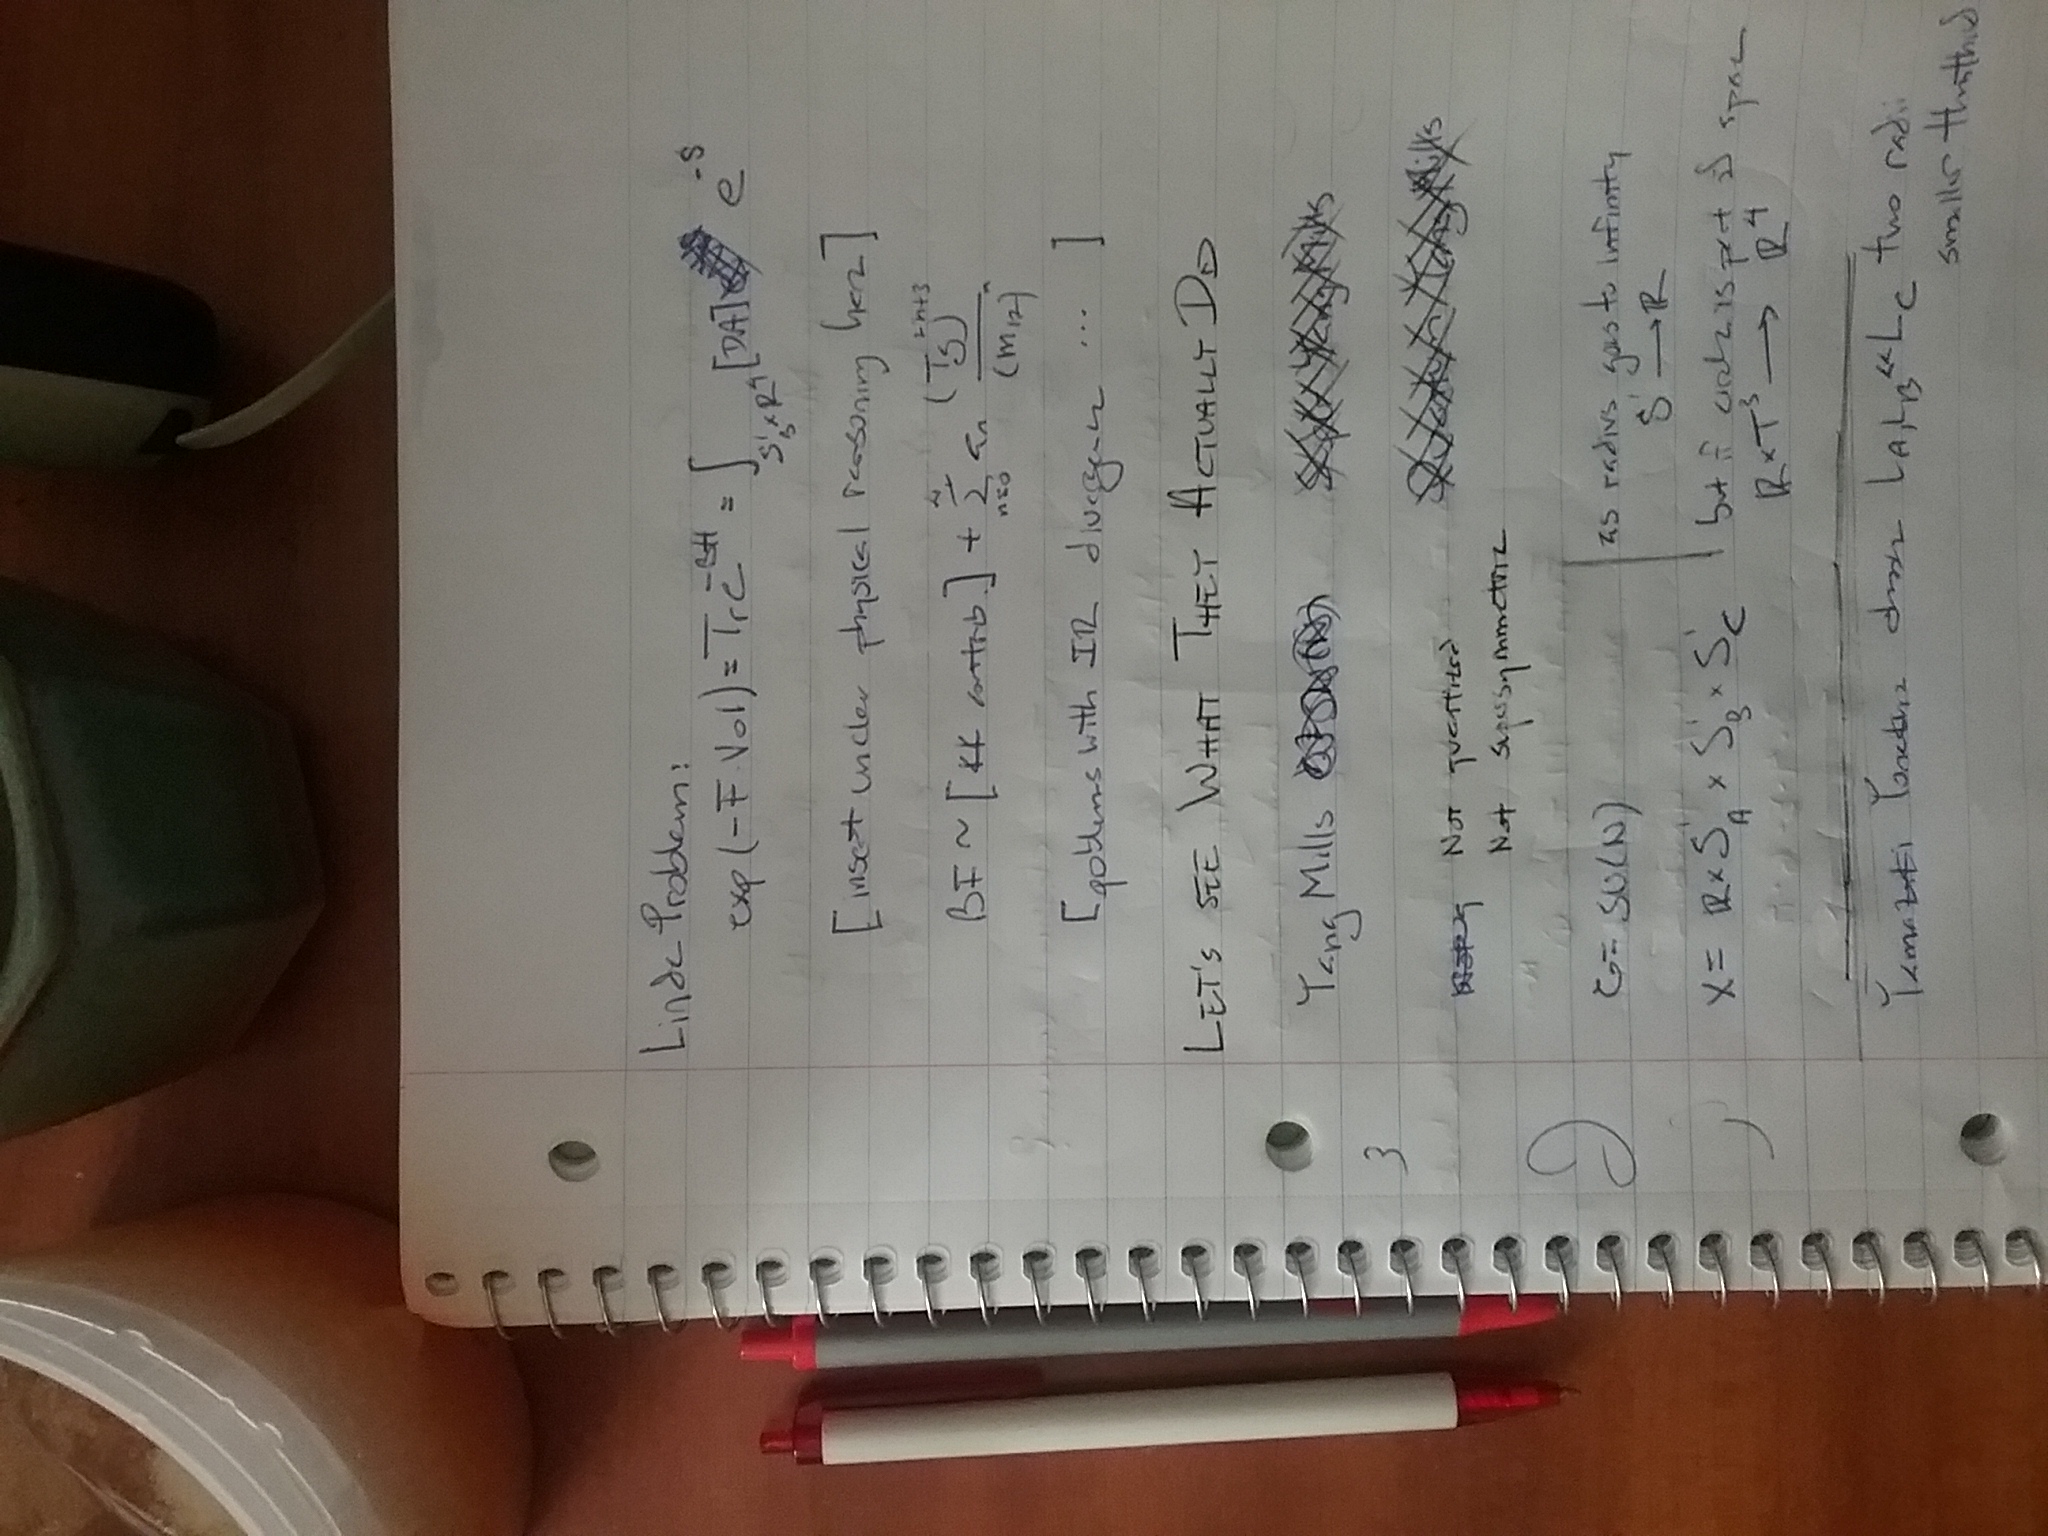 Linde Problem:
exp(-F·Vol) = Tr e^{-βH} = ∫_{S^1_β×R^4} [DA] e^{-S}
[insert under physical reasoning here]
βF ~ [KK contrib] + Σ_{n=0} a_n (Tg)^{2n+3} / (m_{IR})^n
[problems with IR divergence ...]
LET'S SEE WHAT THEY ACTUALLY DO
Yang Mills
Not quantized
Not supersymmetric
G = SU(N)
as radius goes to infinity
S^1 → R
X = R × S^1_A × S^1_B × S^1_C
but if circle is part of space
R×T^3 → R^4
Yamazaki Yonekura L_A, L_B << L_C two radii
smaller than third